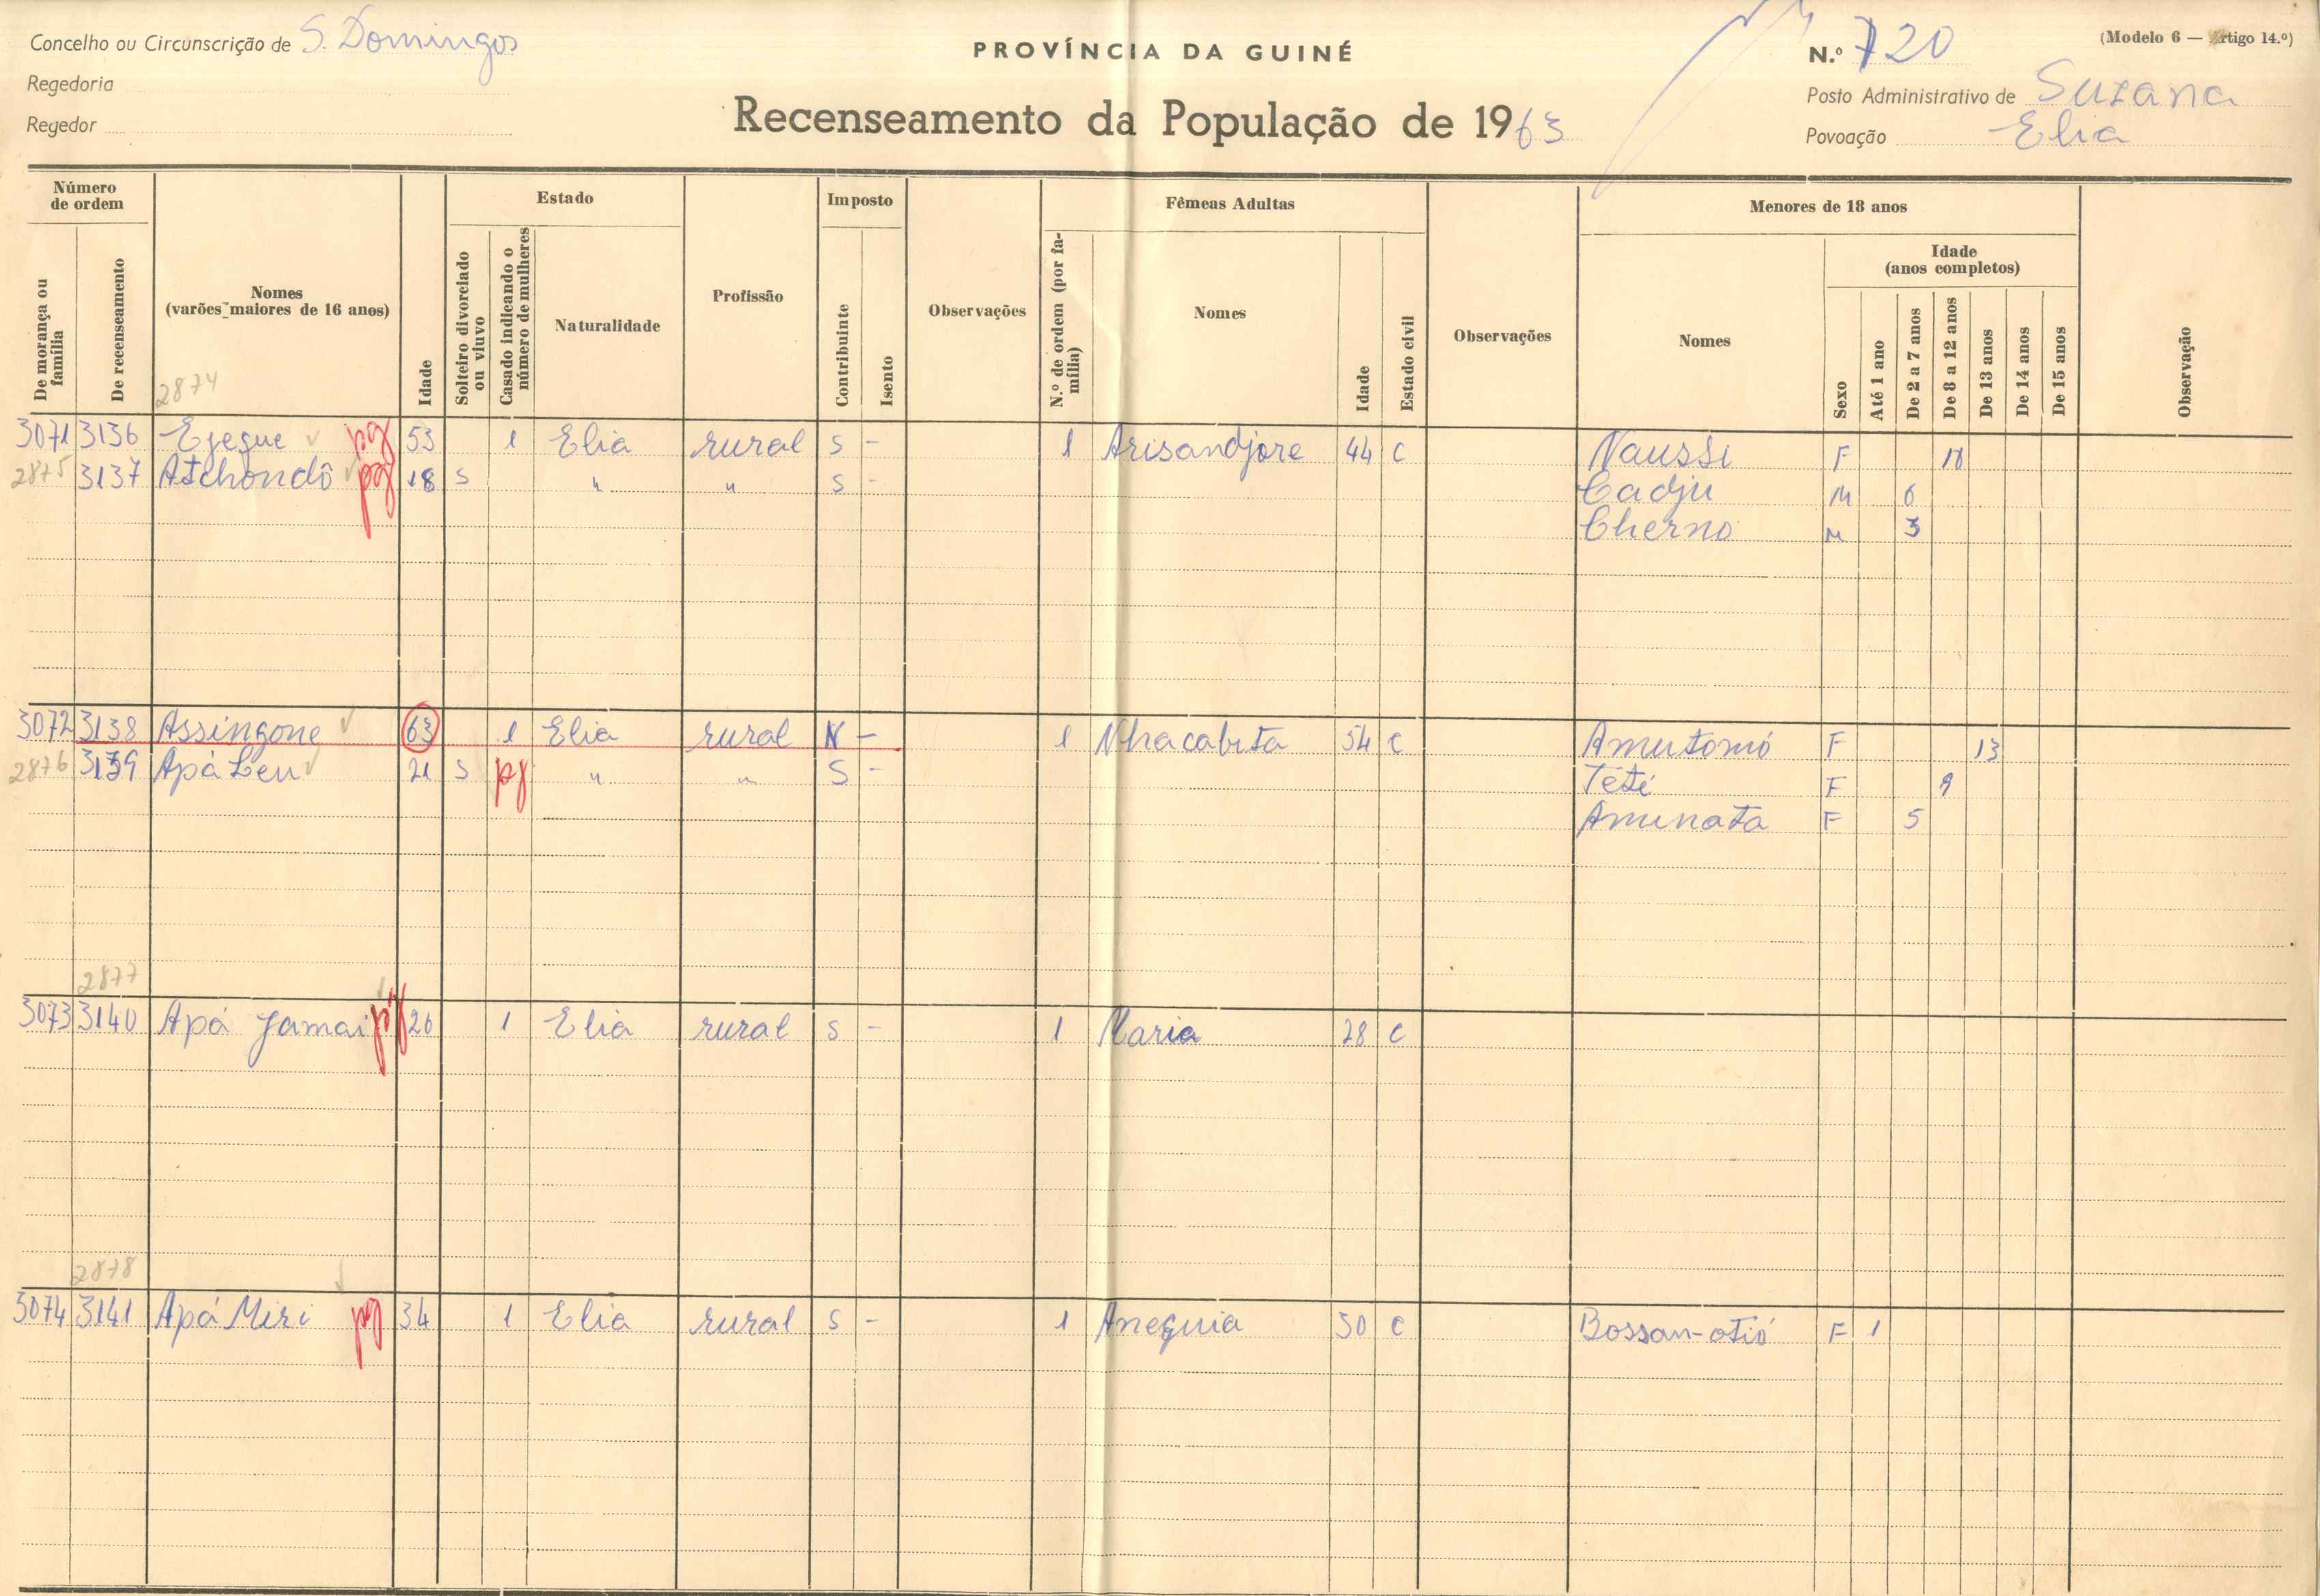 Concelho ou Circunscrição de S. Domingos
Regedoria
Regedor
PROVÍNCIA DA GUINÉ
Recenseamento da População de 1963
N.º 720
(Modelo 6 — Artigo 14.º)
Posto Administrativo de Suzana
Povoação Elia
Número de ordem
De morança ou família
De recenseamento
Nomes
(varões maiores de 16 anos)
2874
Idade
Estado
Solteiro divorciado ou viuvo
Casado indicando o número de mulheres
Naturalidade
Profissão
Imposto
Contribuinte
Isento
Observações
Fêmeas Adultas
N.º de ordem (por família)
Nomes
Idade
Estado civil
Observações
Menores de 18 anos
Nomes
Sexo
Idade
(anos completos)
Até 1 ano
De 2 a 7 anos
De 8 a 12 anos
De 13 anos
De 14 anos
De 15 anos
Observação
3071 3136 Ejegue pg 53 1 Elia rural S - 1 Arisandjore 44 C Naussi F
2875 3137 Atchondô pg 18 S " " S - Cadju M 6
Cherno M 3
3072 3138 Assingone 63 1 Elia rural N - 1 Nhacabita 54 C Amutomó F 13
2876 3139 Apá Leu 21 S pg " " S - Teté F 9
Aminata F 5
2877
3073 3140 Apá Jamai pg 26 1 Elia rural S - 1 Maria 28 C
2878
3074 3141 Apá Miri pg 34 1 Elia rural S - 1 Aneguia 30 C Bossan-otió F 1